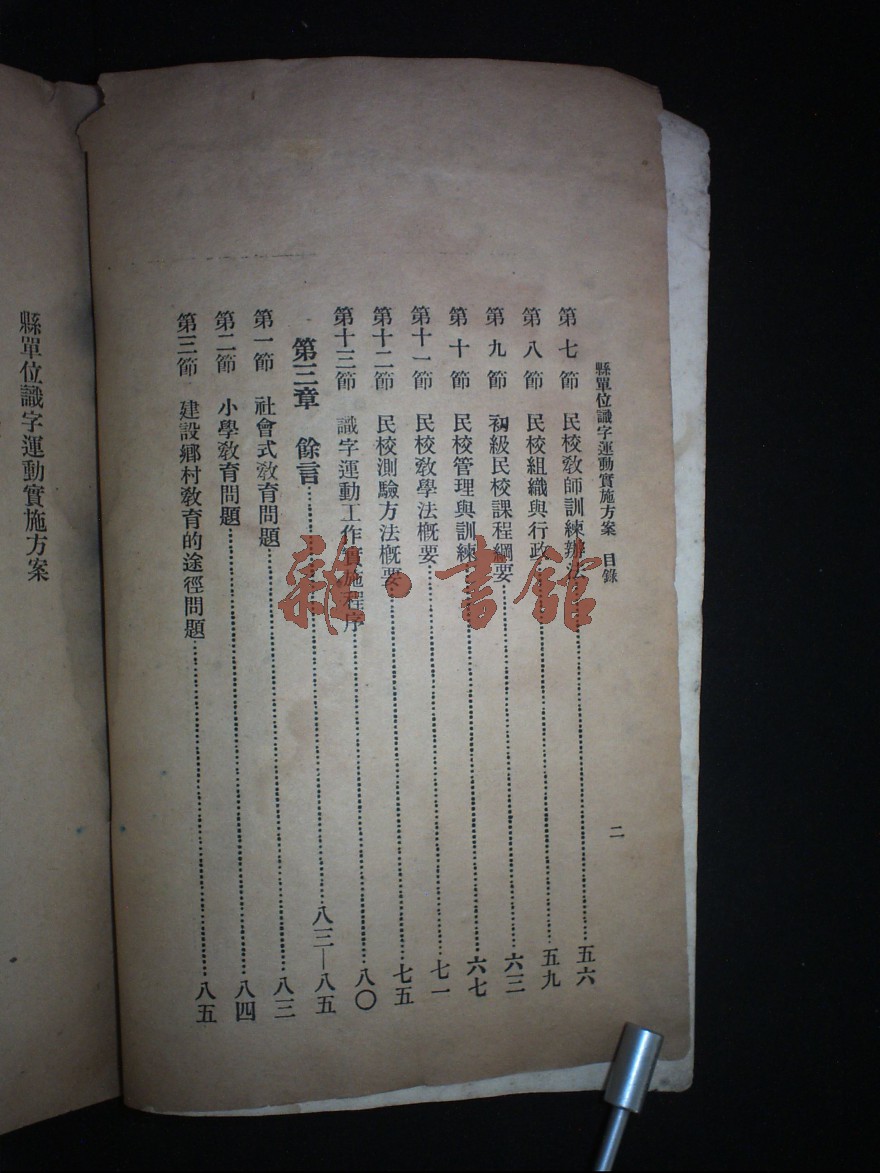 縣單位識字運動實施方案 目錄
二
第七節 民校教師訓練辦法 五六
第八節 民校組織與行政 五九
第九節 初級民校課程綱要 六三
第十節 民校管理與訓練 六七
第十一節 民校教學法概要 七一
第十二節 民校測驗方法概要 七五
第十三節 識字運動工作實施程序 八〇
第三章 餘言 八三—八五
第一節 社會式教育問題 八三
第二節 小學教育問題 八四
第三節 建設鄉村教育的途徑問題 八五
縣單位識字運動實施方案
雜·書館